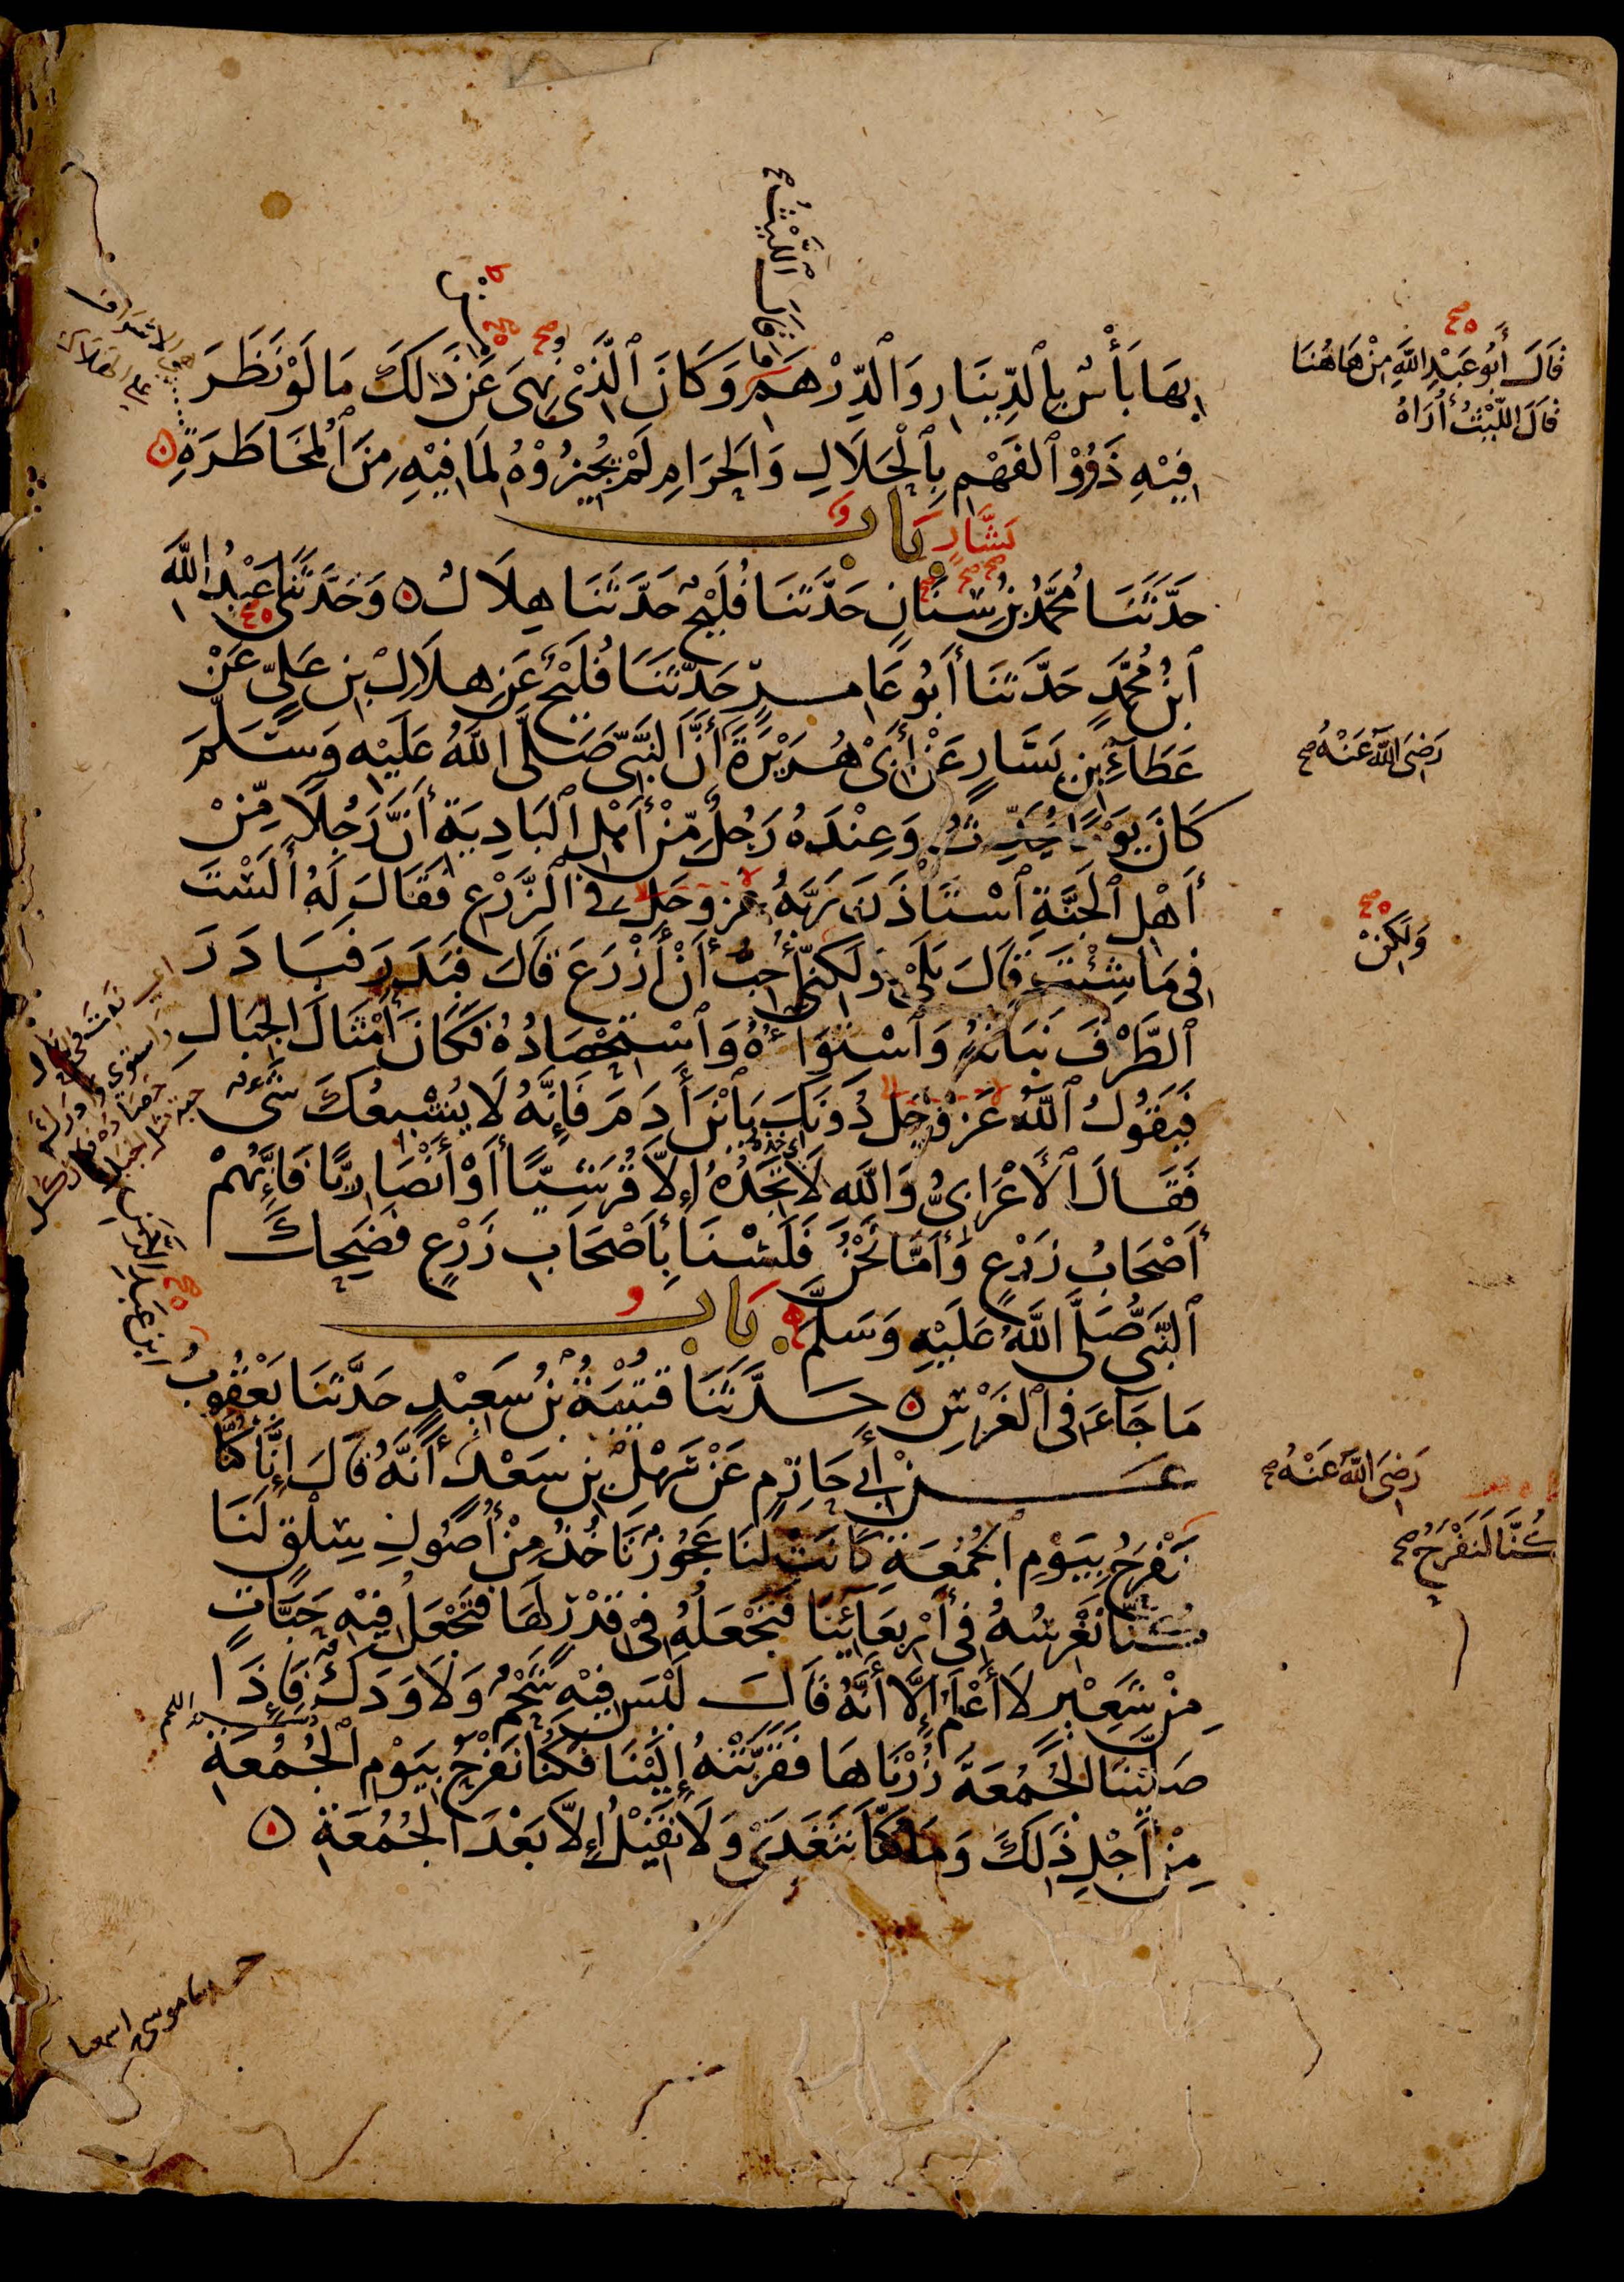 بِهَا بَأْسٌ بِالدِّينَارِ وَالدِّرْهَمِ وَكَانَ ٱلَّذِي نُهِيَ عَنْ ذَلِكَ مَا لَوْ نَظَرَ
فِيْهِ ذَوُوْ ٱلفَهْمِ بِٱلْحَلَالِ وَالْحَرَامِ لَمْ يُجِيزُوْهُ لِمَا فِيْهِ مِنَ ٱلْمُخَاطَرَةِ
بَابٌ
حَدَّثَنَا مُحَمَّدُ بْنُ سِنَانٍ حَدَّثَنَا فُلَيْحٌ حَدَّثَنَا هِلَالٌ وَحَدَّثَنِي عَبْدُ اللهِ
ٱبْنُ مُحَمَّدٍ حَدَّثَنَا أَبُو عَامِرٍ حَدَّثَنَا فُلَيْحٌ عَنْ هِلَالِ بْنِ عَلِيٍّ عَنْ
عَطَاءِ بْنِ يَسَارٍ عَنْ أَبِي هُرَيْرَةَ أَنَّ النَّبِيَّ صَلَّى اللهُ عَلَيْهِ وَسَلَّمَ
كَانَ يَوْمًا يُحَدِّثُ وَعِنْدَهُ رَجُلٌ مِّنْ أَهْلِ ٱلْبَادِيَةِ أَنَّ رَجُلًا مِّنْ
أَهْلِ ٱلْجَنَّةِ ٱسْتَأْذَنَ رَبَّهُ عَزَّ وَجَلَّ فِي ٱلزَّرْعِ فَقَالَ لَهُ أَلَسْتَ
فِي مَا شِئْتَ قَالَ بَلَى وَلَكِنِّي أُحِبُّ أَنْ أَزْرَعَ قَالَ فَبَذَرَ فَبَادَرَ
ٱلطَّرْفَ نَبَاتُهُ وَٱسْتِوَاؤُهُ وَٱسْتِحْصَادُهُ فَكَانَ أَمْثَالَ الْجِبَالِ
فَيَقُولُ ٱللهُ عَزَّ وَجَلَّ دُونَكَ يَا ٱبْنَ أَدَمَ فَإِنَّهُ لَا يُشْبِعُكَ شَيْءٌ
فَقَالَ ٱلْأَعْرَابِيُّ وَاللهِ لَا تَجِدُهُ إِلَّا قُرَشِيًّا أَوْ أَنْصَارِيًّا فَإِنَّهُمْ
أَصْحَابُ زَرْعٍ وَأَمَّا نَحْنُ فَلَسْنَا بِأَصْحَابِ زَرْعٍ فَضَحِكَ
ٱلنَّبِيُّ صَلَّى اللهُ عَلَيْهِ وَسَلَّمَ بَابُ
مَا جَاءَ فِي ٱلْغَرْسِ حَدَّثَنَا قُتَيْبَةُ بْنُ سَعِيْدٍ حَدَّثَنَا يَعْقُوبُ
عَنْ أَبِي حَازِمٍ عَنْ سَهْلِ بْنِ سَعْدٍ أَنَّهُ قَالَ إِنَّا كُنَّا
نَفْرَحُ بِيَوْمِ ٱلْجُمُعَةِ كَانَتْ لَنَا عَجُوزٌ تَأْخُذُ مِنْ أُصُولِ سِلْقٍ لَنَا
كُنَّا نَغْرِسُهُ فِي أَرْبِعَائِنَا فَتَجْعَلُهُ فِي قِدْرٍ لَهَا فَتَجْعَلُ فِيْهِ حَبَّاتٍ
مِنْ شَعِيْرٍ لَا أَعْلَمُ إِلَّا أَنَّهُ قَالَ لَيْسَ فِيْهِ شَحْمٌ وَلَا وَدَكٌ فَإِذَا
صَلَّيْنَا الْجُمُعَةَ زُرْنَاهَا فَقَرَّبَتْهُ إِلَيْنَا فَكُنَّا نَفْرَحُ بِيَوْمِ ٱلْجُمُعَةِ
مِنْ أَجْلِ ذَلِكَ وَمَا كُنَّا نَتَغَدَّى وَلَا نَقِيْلُ إِلَّا بَعْدَ الْجُمُعَةِ
وَقَالَ اللَّيْثُ
بَشَّارٍ
قَالَ أَبُو عَبْدِ اللهِ مِنْ هَاهُنَا
قَالَ اللَّيْثُ أُرَاهُ
رَضِيَ اللهُ عَنْهُ صح
وَلَكِنْ
رَضِيَ اللهُ عَنْهُ صح
كُنَّا لَنَفْرَحُ صح
ابن عبد الرحمن
حدثنا موسى